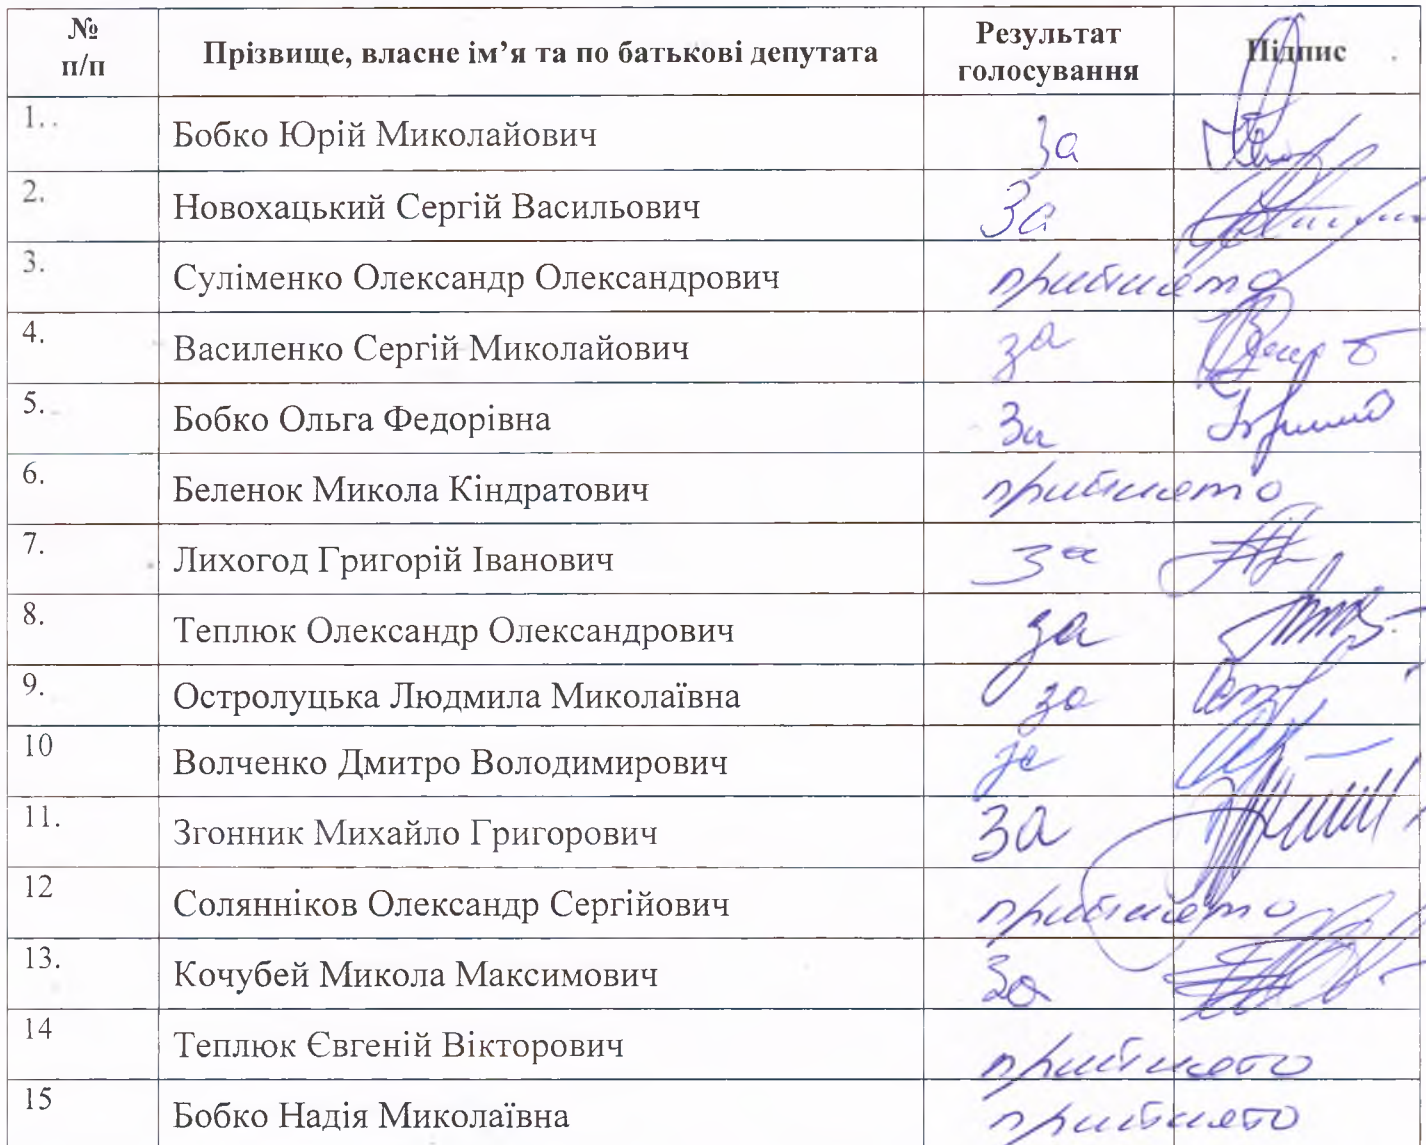 № п/п Прізвище, власне ім’я та по батькові депутата Результат голосування Підпис
1. Бобко Юрій Миколайович За
2. Новохацький Сергій Васильович За
3. Суліменко Олександр Олександрович прийнято
4. Василенко Сергій Миколайович за
5. Бобко Ольга Федорівна За
6. Беленок Микола Кіндратович прийнято
7. Лихогод Григорій Іванович За
8. Теплюк Олександр Олександрович за
9. Остролуцька Людмила Миколаївна за
10 Волченко Дмитро Володимирович за
11. Згонник Михайло Григорович За
12 Солянніков Олександр Сергійович прийнято
13. Кочубей Микола Максимович За
14 Теплюк Євгеній Вікторович прийнято
15 Бобко Надія Миколаївна прийнято